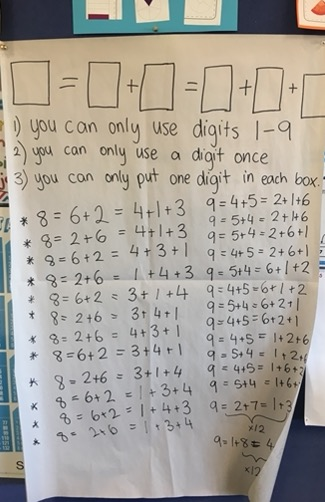 □ = □ + □ = □ + □ +
1) you can only use digits 1-9
2) you can only use a digit once
3) you can only put one digit in each box.
* 8 = 6+2 = 4+1+3
* 8 = 2+6 = 4+1+3
* 8 = 6+2 = 4+3+1
* 8 = 2+6 = 1+4+3
* 8 = 6+2 = 3+1+4
* 8 = 2+6 = 3+4+1
* 8 = 2+6 = 4+3+1
* 8 = 6+2 = 3+4+1
* 8 = 2+6 = 3+1+4
* 8 = 6+2 = 1+3+4
* 8 = 6+2 = 1+4+3
* 8 = 2+6 = 1+3+4
9 = 4+5 = 2+1+6
9 = 5+4 = 2+1+6
9 = 5+4 = 2+6+1
9 = 4+5 = 2+6+1
9 = 5+4 = 6+1+2
9 = 4+5 = 6+1+2
9 = 5+4 = 6+2+1
9 = 4+5 = 6+2+1
9 = 4+5 = 1+2+6
9 = 5+4 = 1+2+6
9 = 4+5 = 1+6+2
9 = 5+4 = 1+6+
9 = 2+7 = 1+3
x12
9 = 1+8 = 4
x12